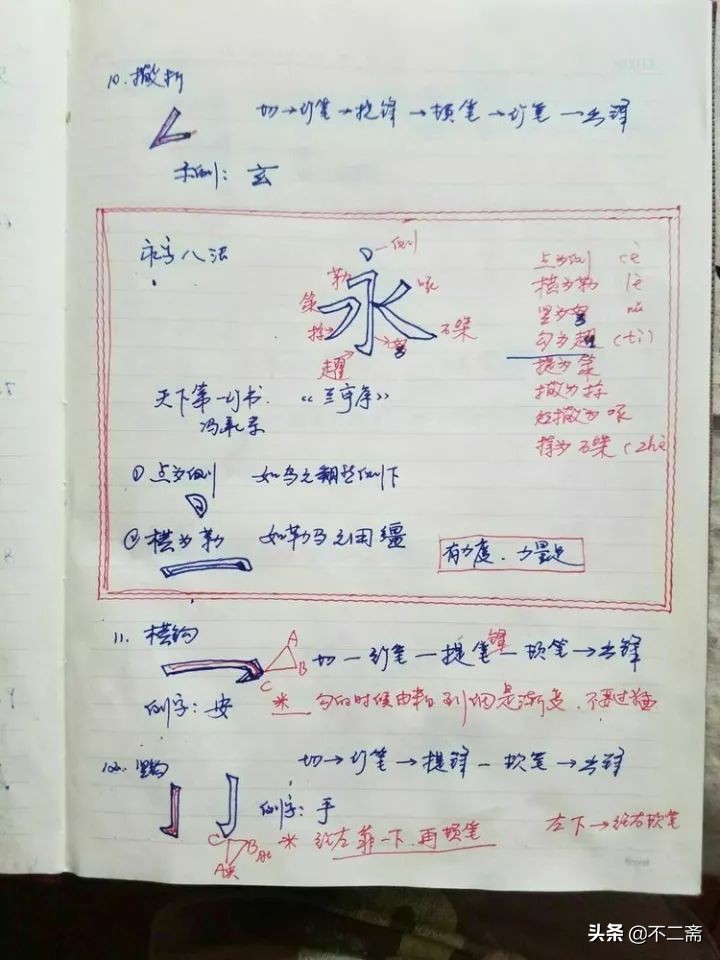 10. 撇折
切→行笔→提锋→顿笔→行笔→出锋
示例：玄
永字八法
侧
勒
策
啄
掠
磔
趯
努
点为侧 cè
横为勒 lè
竖为努 nǔ
勾为趯 (tì)
提为策
撇为掠
短撇为啄
捺为磔 (zhé
天下第一行书.《兰亭序》
冯承素
①点为侧 如鸟之翻然侧下
②横为勒 如勒马之用缰
有力度、力量足
11. 横钩
A
B
C
切—行笔—提笔锋—顿笔→出锋
例字：安
※ 勾的时候由粗到细是渐变、不要过猛
12. 竖钩
切→行笔→提锋—顿笔→出锋
例字：手
C
B
A
※ 给左靠一下.再顿笔
左下→给右顿笔
头条@不二斋